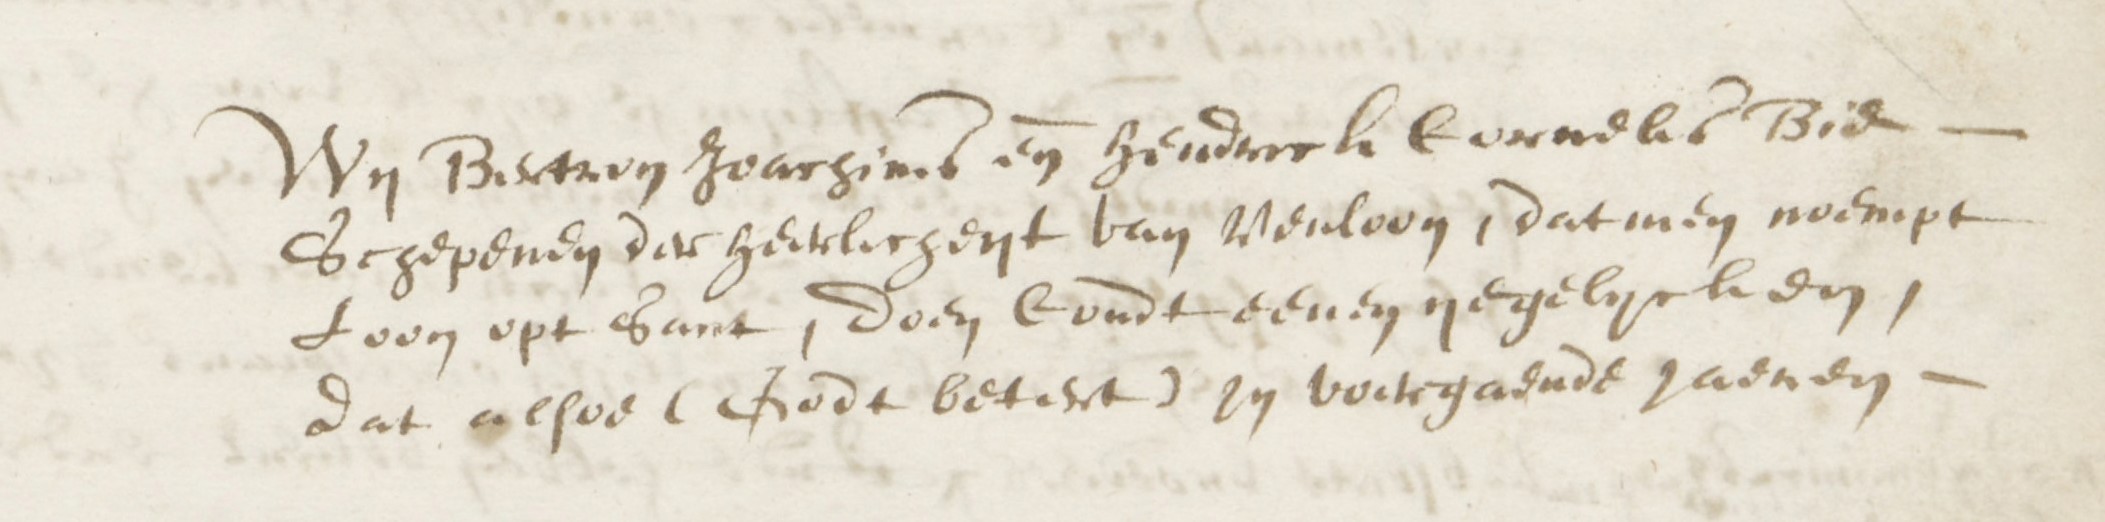 Wij Bertron Joachims en Henderick Cornelis Bie
Schepenen der Heerlicheyt van Venloon, datmen noempt
Loon opt Sant, doen Condt eenen yegelycken,
dat alsoe (Godt betert) in voirgaende jaeren